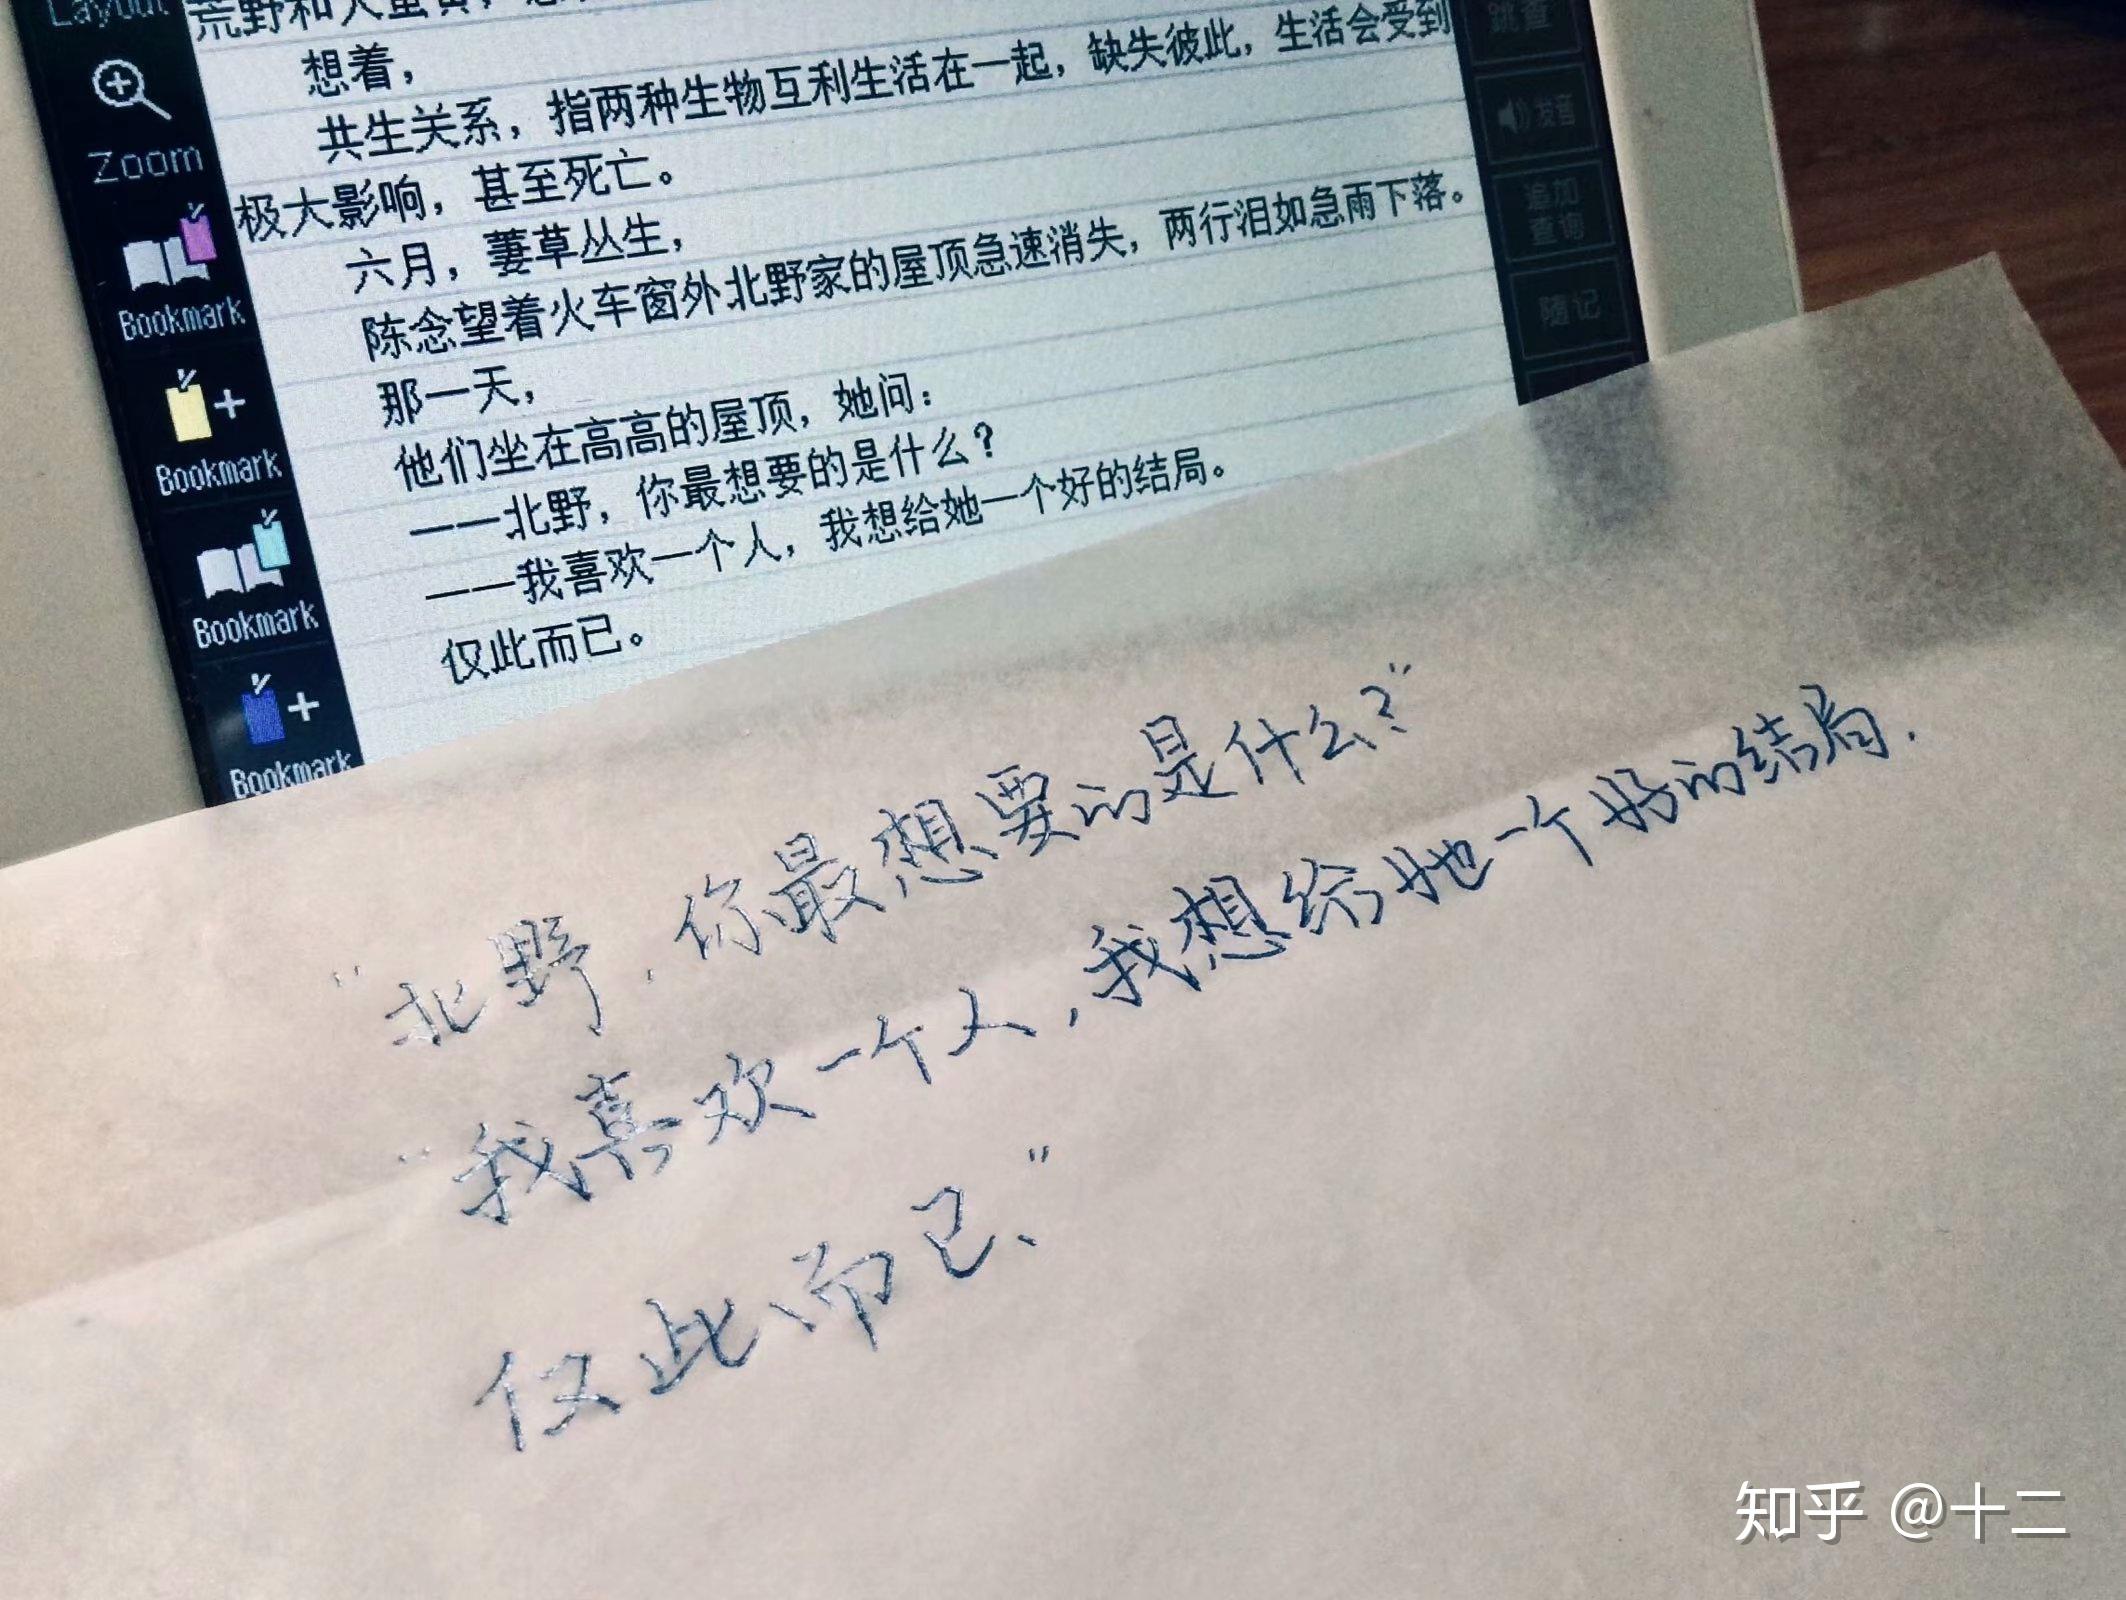 Layout
荒野和
Zoom
Bookmark
Bookmark
Bookmark
Bookmark
想着，
共生关系，指两种生物互利生活在一起，缺失彼此，生活会受到
极大影响，甚至死亡。
六月，萋草丛生，
陈念望着火车窗外北野家的屋顶急速消失，两行泪如急雨下落。
那一天，
他们坐在高高的屋顶，她问：
——北野，你最想要的是什么？
——我喜欢一个人，我想给她一个好的结局。
仅此而已。
跳查
发音
追加
查询
随记
“北野，你最想要的是什么？”
“我喜欢一个人，我想给她一个好的结局.
仅此而已、”
知乎 @十二